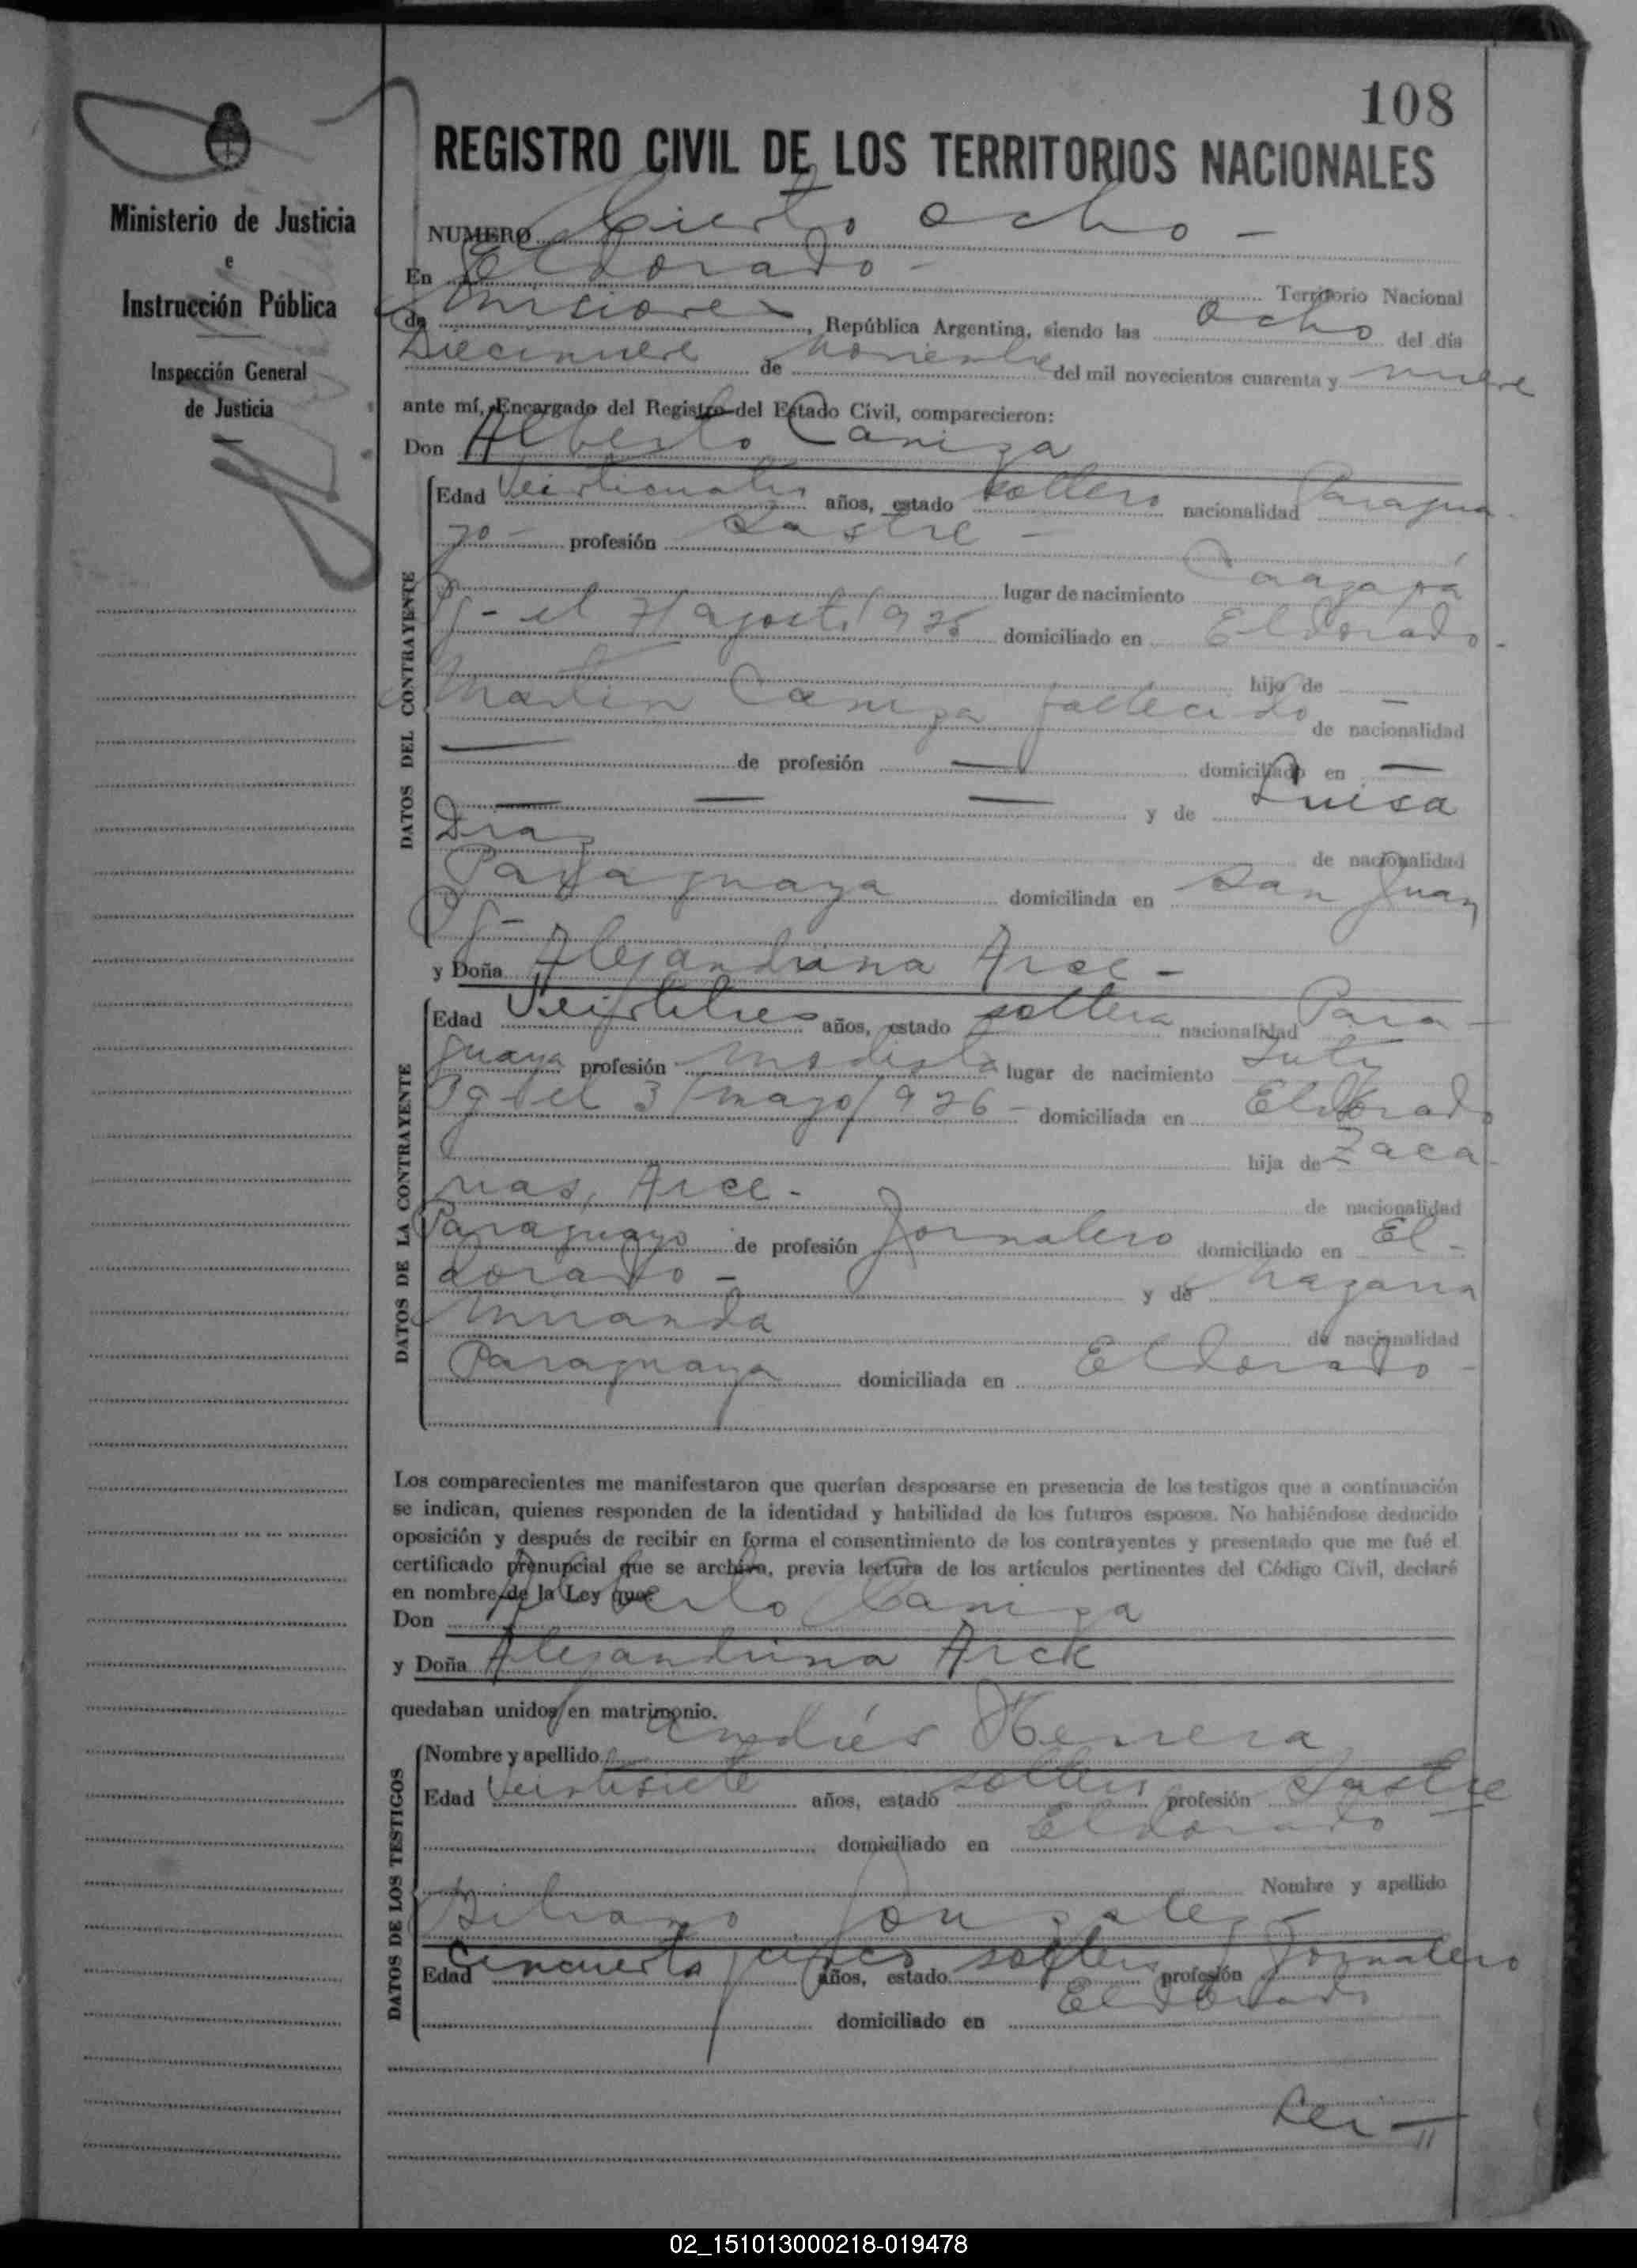 108
REGISTRO CIVIL DE LOS TERRITORIOS NACIONALES
Ministerio de Justicia
e
Instrucción Pública
Inspección General
de Justicia
NUMERO Ciento ocho -
En Eldorado - Territorio Nacional
de Misiones, República Argentina, siendo las Ocho del día
Diecinueve de Noviembre del mil novecientos cuarenta y nueve
ante mí, Encargado del Registro del Estado Civil, comparecieron:
Don Alberto Caniza
DATOS DEL CONTRAYENTE
Edad Veinticuatro años, estado soltero nacionalidad Paragua-
yo - profesión Sastre -
lugar de nacimiento Caazapá
Pg - el 7/agosto/925 domiciliado en Eldorado -
hijo de -
Martin Caniza fallecido de nacionalidad
— de profesión — domiciliado en —
— — — y de Luisa
Diaz de nacionalidad
Paraguaya domiciliada en San Juan
Pg -
y Doña Alejandrina Arce -
DATOS DE LA CONTRAYENTE
Edad Veintitres años, estado soltera nacionalidad Para-
guaya profesión Modista lugar de nacimiento Yuty
Pg - el 3/mayo/926 - domiciliada en Eldorado
hija de Zaca-
rias Arce - de nacionalidad
Paraguayo de profesión Jornalero domiciliado en El-
dorado - y de Nazaria
Miranda de nacionalidad
Paraguaya domiciliada en Eldorado -
Los comparecientes me manifestaron que querían desposarse en presencia de los testigos que a continuación
se indican, quienes responden de la identidad y habilidad de los futuros esposos. No habiéndose deducido
oposición y después de recibir en forma el consentimiento de los contrayentes y presentado que me fué el
certificado prenupcial que se archiva, previa lectura de los artículos pertinentes del Código Civil, declaré
en nombre de la Ley que:
Don Alberto Caniza
y Doña Alejandrina Arce
quedaban unidos en matrimonio.
DATOS DE LOS TESTIGOS
Nombre y apellido Andrés Herrera
Edad Veintisiete años, estado soltero profesión Sastre
domiciliado en Eldorado -
Nombre y apellido
Silvano Gonzalez -
Edad Cincuenta y cinco años, estado soltero profesión Jornalero
domiciliado en Eldorado
02_151013000218-019478